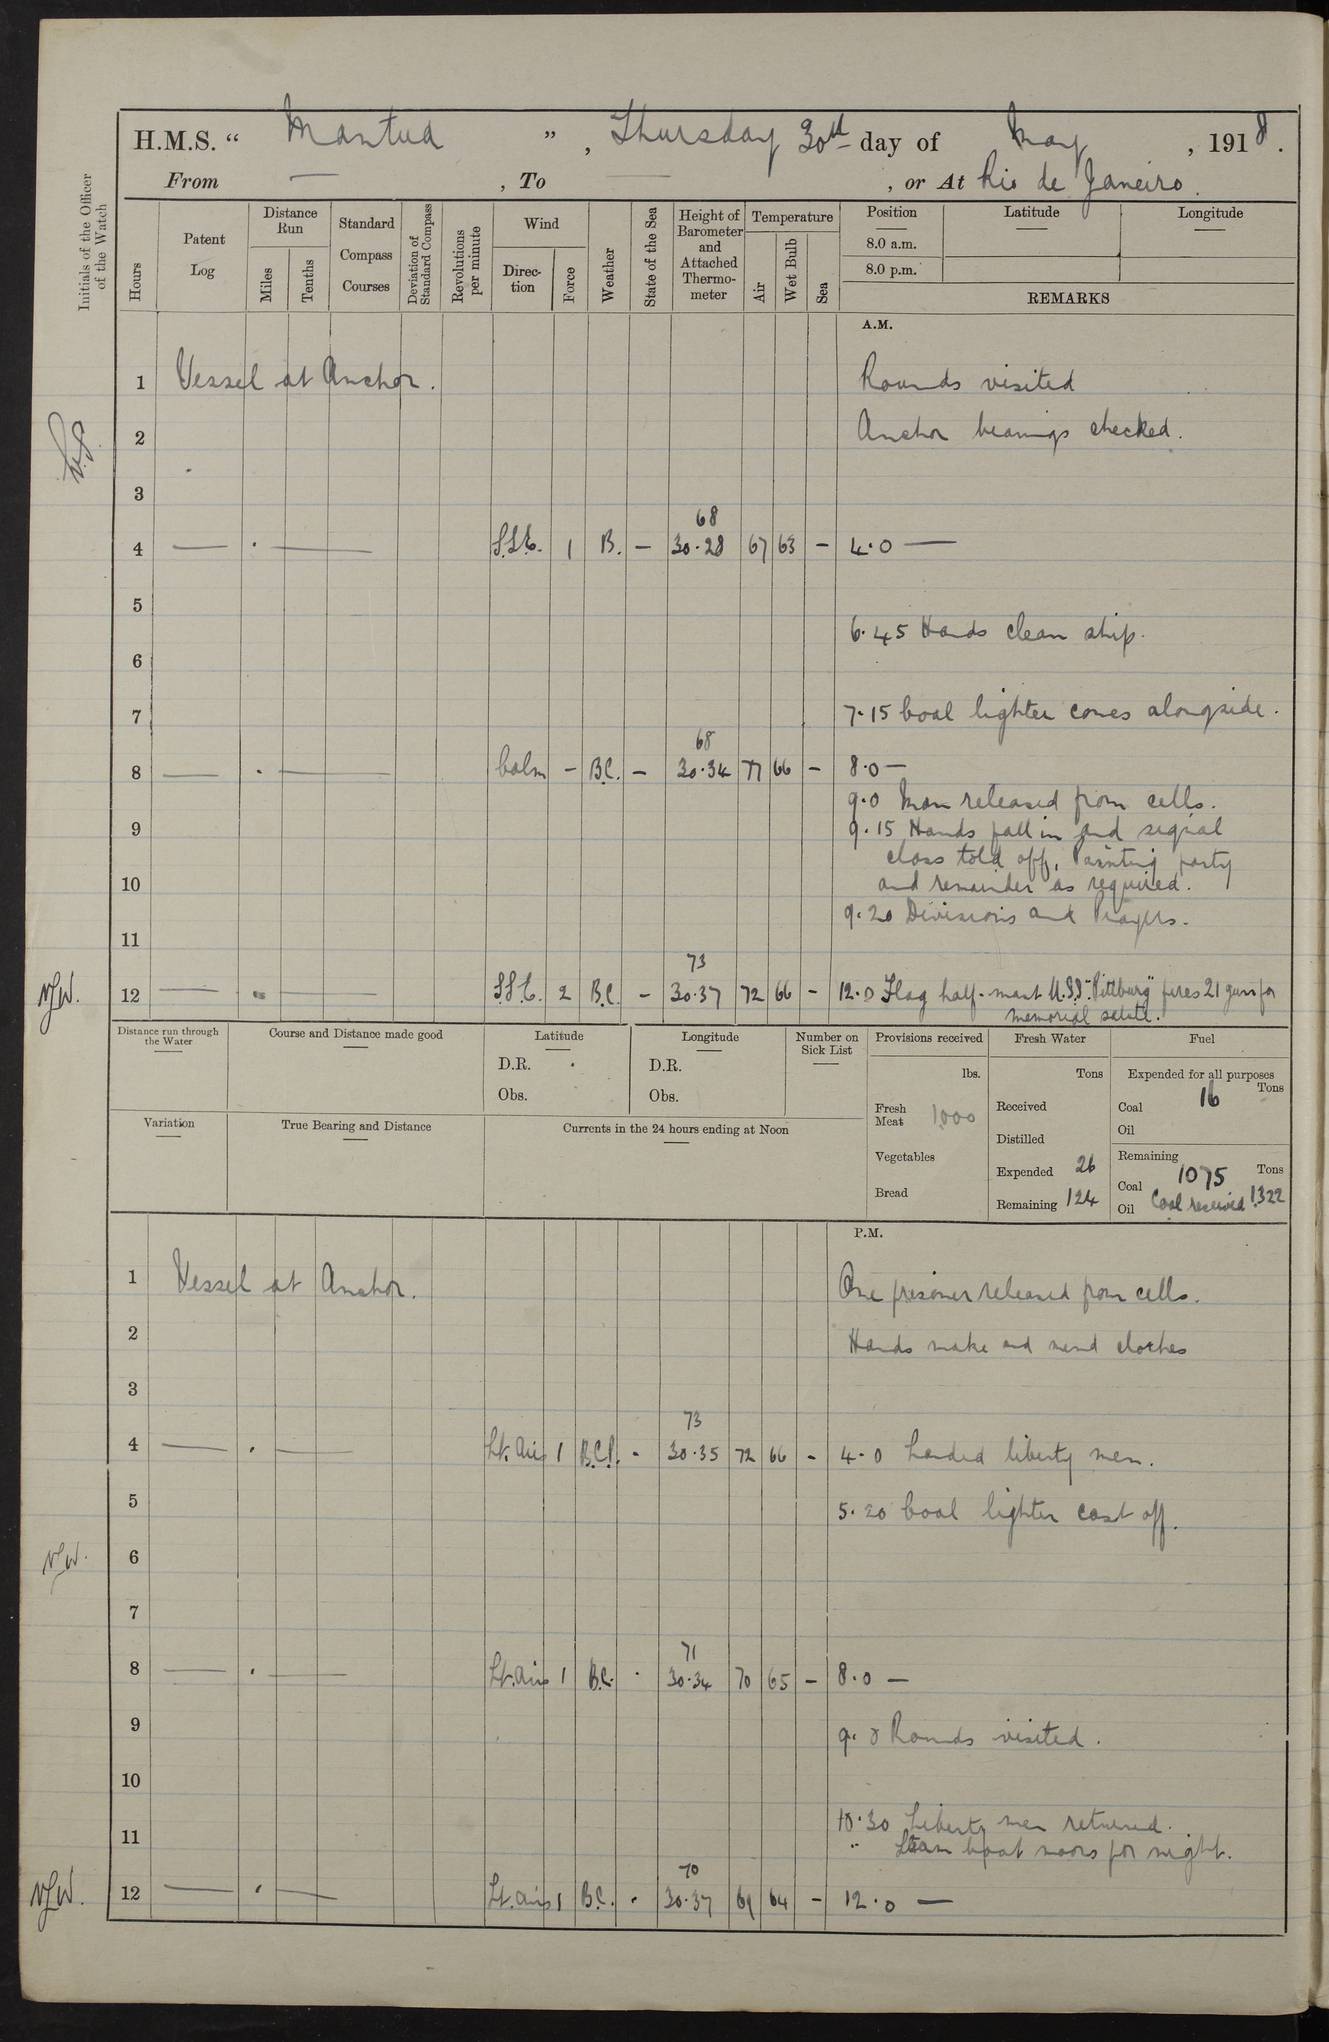 H.M.S. “ Mantua ” , Thursday 30th day of May , 1918 .
From — , To — , or At Rio de Janeiro.
Initials of the Officer of the Watch
Hours
Patent Log
Distance Run
Miles
Tenths
Standard Compass Courses
Deviation of Standard Compass
Revolutions per minute
Wind
Direc-tion
Force
Weather
State of the Sea
Height of Barometer and Attached Thermo-meter
Temperature
Air
Wet Bulb
Sea
Position
Latitude
Longitude
8.0 a.m.
8.0 p.m.
REMARKS
A.M.
1 Vessel at Anchor. Rounds visited
2 Anchor bearings checked.
3
68
4 — . — S.S.E. 1 B. — 30.28 67 63 — 4.0 —
5
6.45 Hands clean ship.
6
7 7.15 Coal lighter comes alongside.
68
8 — . — Calm — B.C. — 30.34 71 66 — 8.0 —
9.0 Man released from cells.
9 9.15 Hands fall in and signal
class told off, Painting party
10 and remainder as required.
9.20 Divisions and Prayers.
11
73
N.J.W. 12 — — S.S.E. 2 B.C. — 30.37 72 66 — 12.0 Flag half-mast U.S.S. "Pittburg" fires 21 guns for
memorial salute.
Distance run through the Water
Course and Distance made good
Latitude
D.R.
Obs.
Longitude
D.R.
Obs.
Number on Sick List
Provisions received
lbs.
Fresh Meat 1000
Vegetables
Bread
Fresh Water
Tons
Received
Distilled
Expended 26
Remaining 124
Fuel
Expended for all purposes
Tons
Coal 16
Oil
Remaining
Tons
Coal 1075
Oil Coal received 1322
Variation
True Bearing and Distance
Currents in the 24 hours ending at Noon
P.M.
1 Vessel at Anchor. One prisoner released from cells.
2 Hands make and mend clothes
3
73
4 — . — Lt. Airs 1 B.C.P. - 30.35 72 66 - 4.0 Landed liberty men.
5 5.20 Coal lighter cast off.
N.J.W. 6
7
71
8 — . — Lt. Airs 1 B.C. . 30.34 70 65 — 8.0 —
9 9.0 Rounds visited.
10
10.30 Liberty men returned.
11 " Steam boat moors for night.
70
N.J.W. 12 — . — Lt. Airs 1 B.C. . 30.37 69 64 — 12.0 —